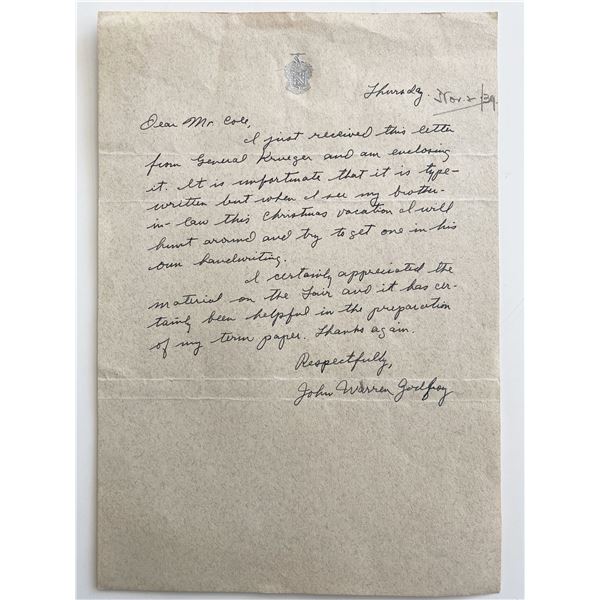 Thursday. Nov. 2/39
Dear Mr. Cole,
I just received this letter
from General Krueger and am enclosing
it. It is unfortunate that it is type-
written but when I see my brother-
in-law this Christmas vacation I will
hunt around and try to get one in his
own handwriting.
I certainly appreciated the
material on the Fair and it has cer-
tainly been helpful in the preparation
of my term paper. Thanks again.
Respectfully,
John Warren Godfroy